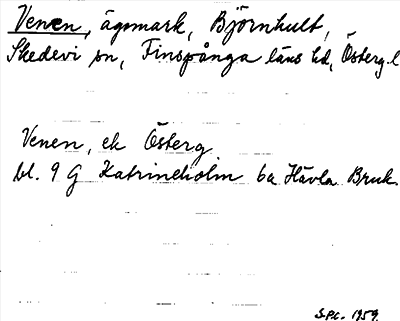 Venen, ägomark, Björnhult,
Skedevi sn, Finspånga läns hd, Österg.l
Venen, ek Österg
bl. 9 G Katrineholm 6a Hävla Bruk.
S.P.C. 1959.